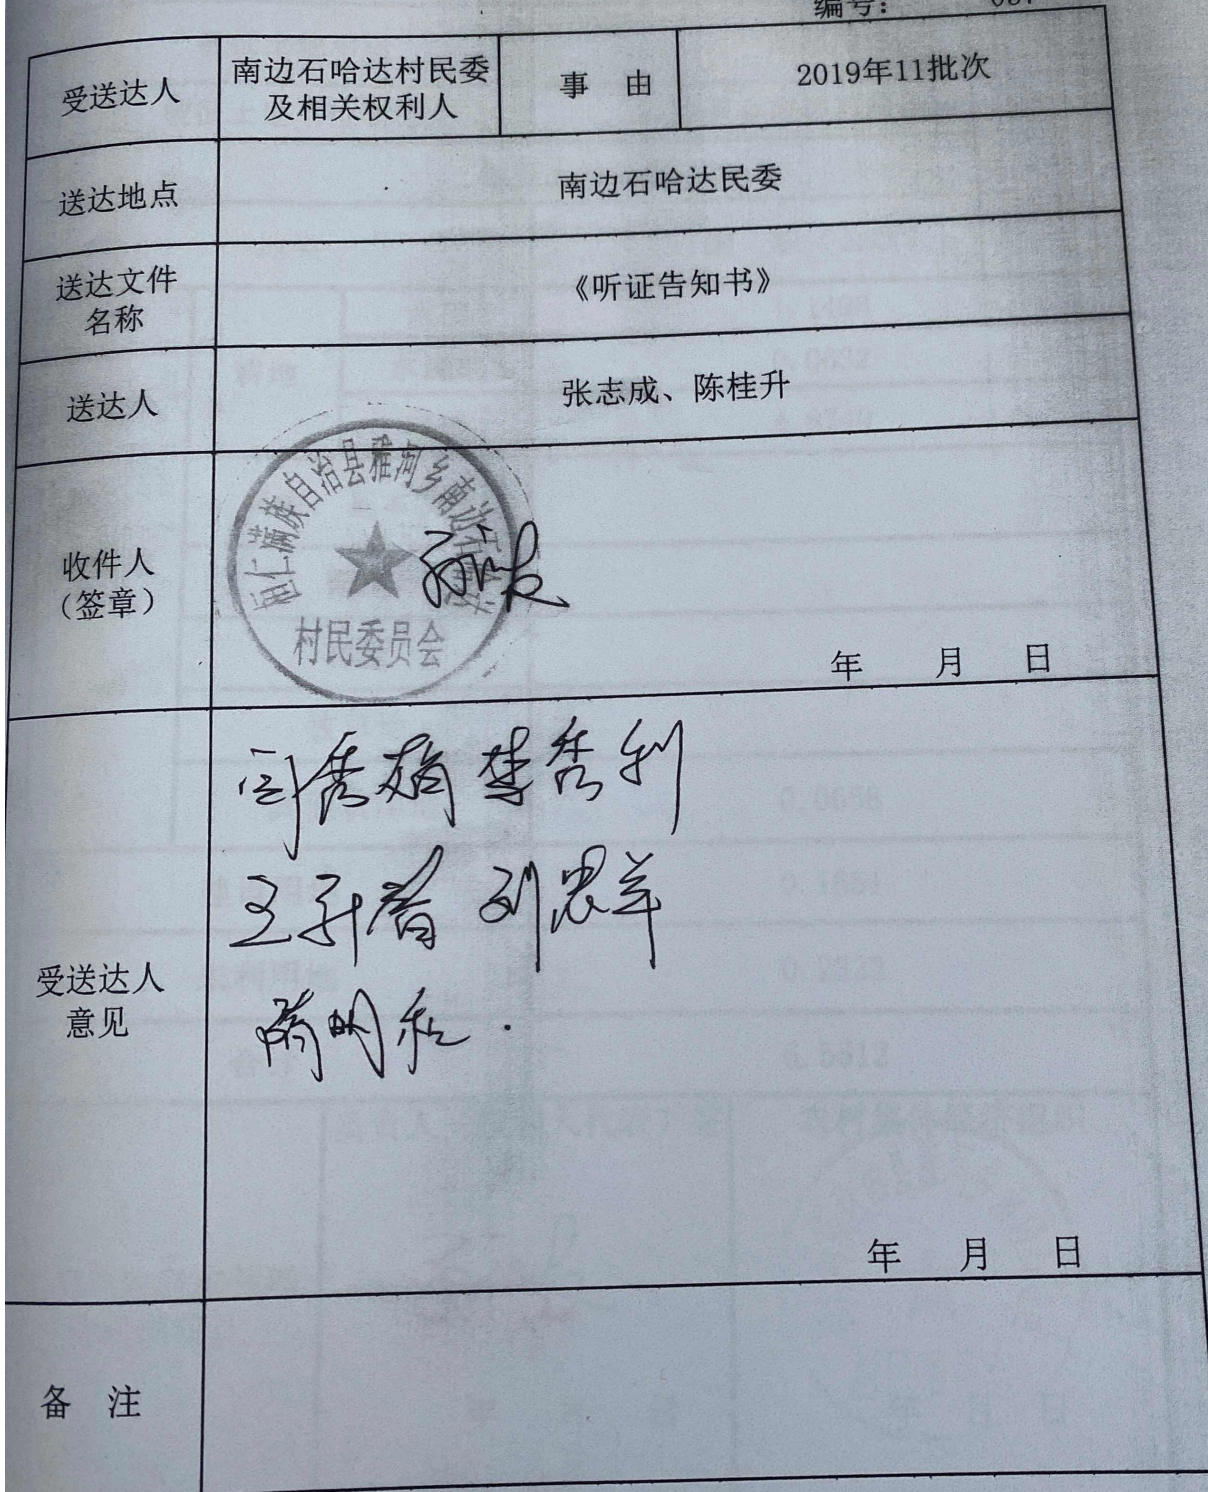 编号:
受送达人
南边石哈达村民委
及相关权利人
事 由
2019年11批次
送达地点
南边石哈达民委
送达文件
名称
《听证告知书》
送达人
张志成、陈桂升
收件人
（签章）
桓仁满族自治县雅河乡南边石哈达
村民委员会
年 月 日
受送达人
意见
闫秀梅 李秀利
刘忠羊
明和
年 月 日
备 注